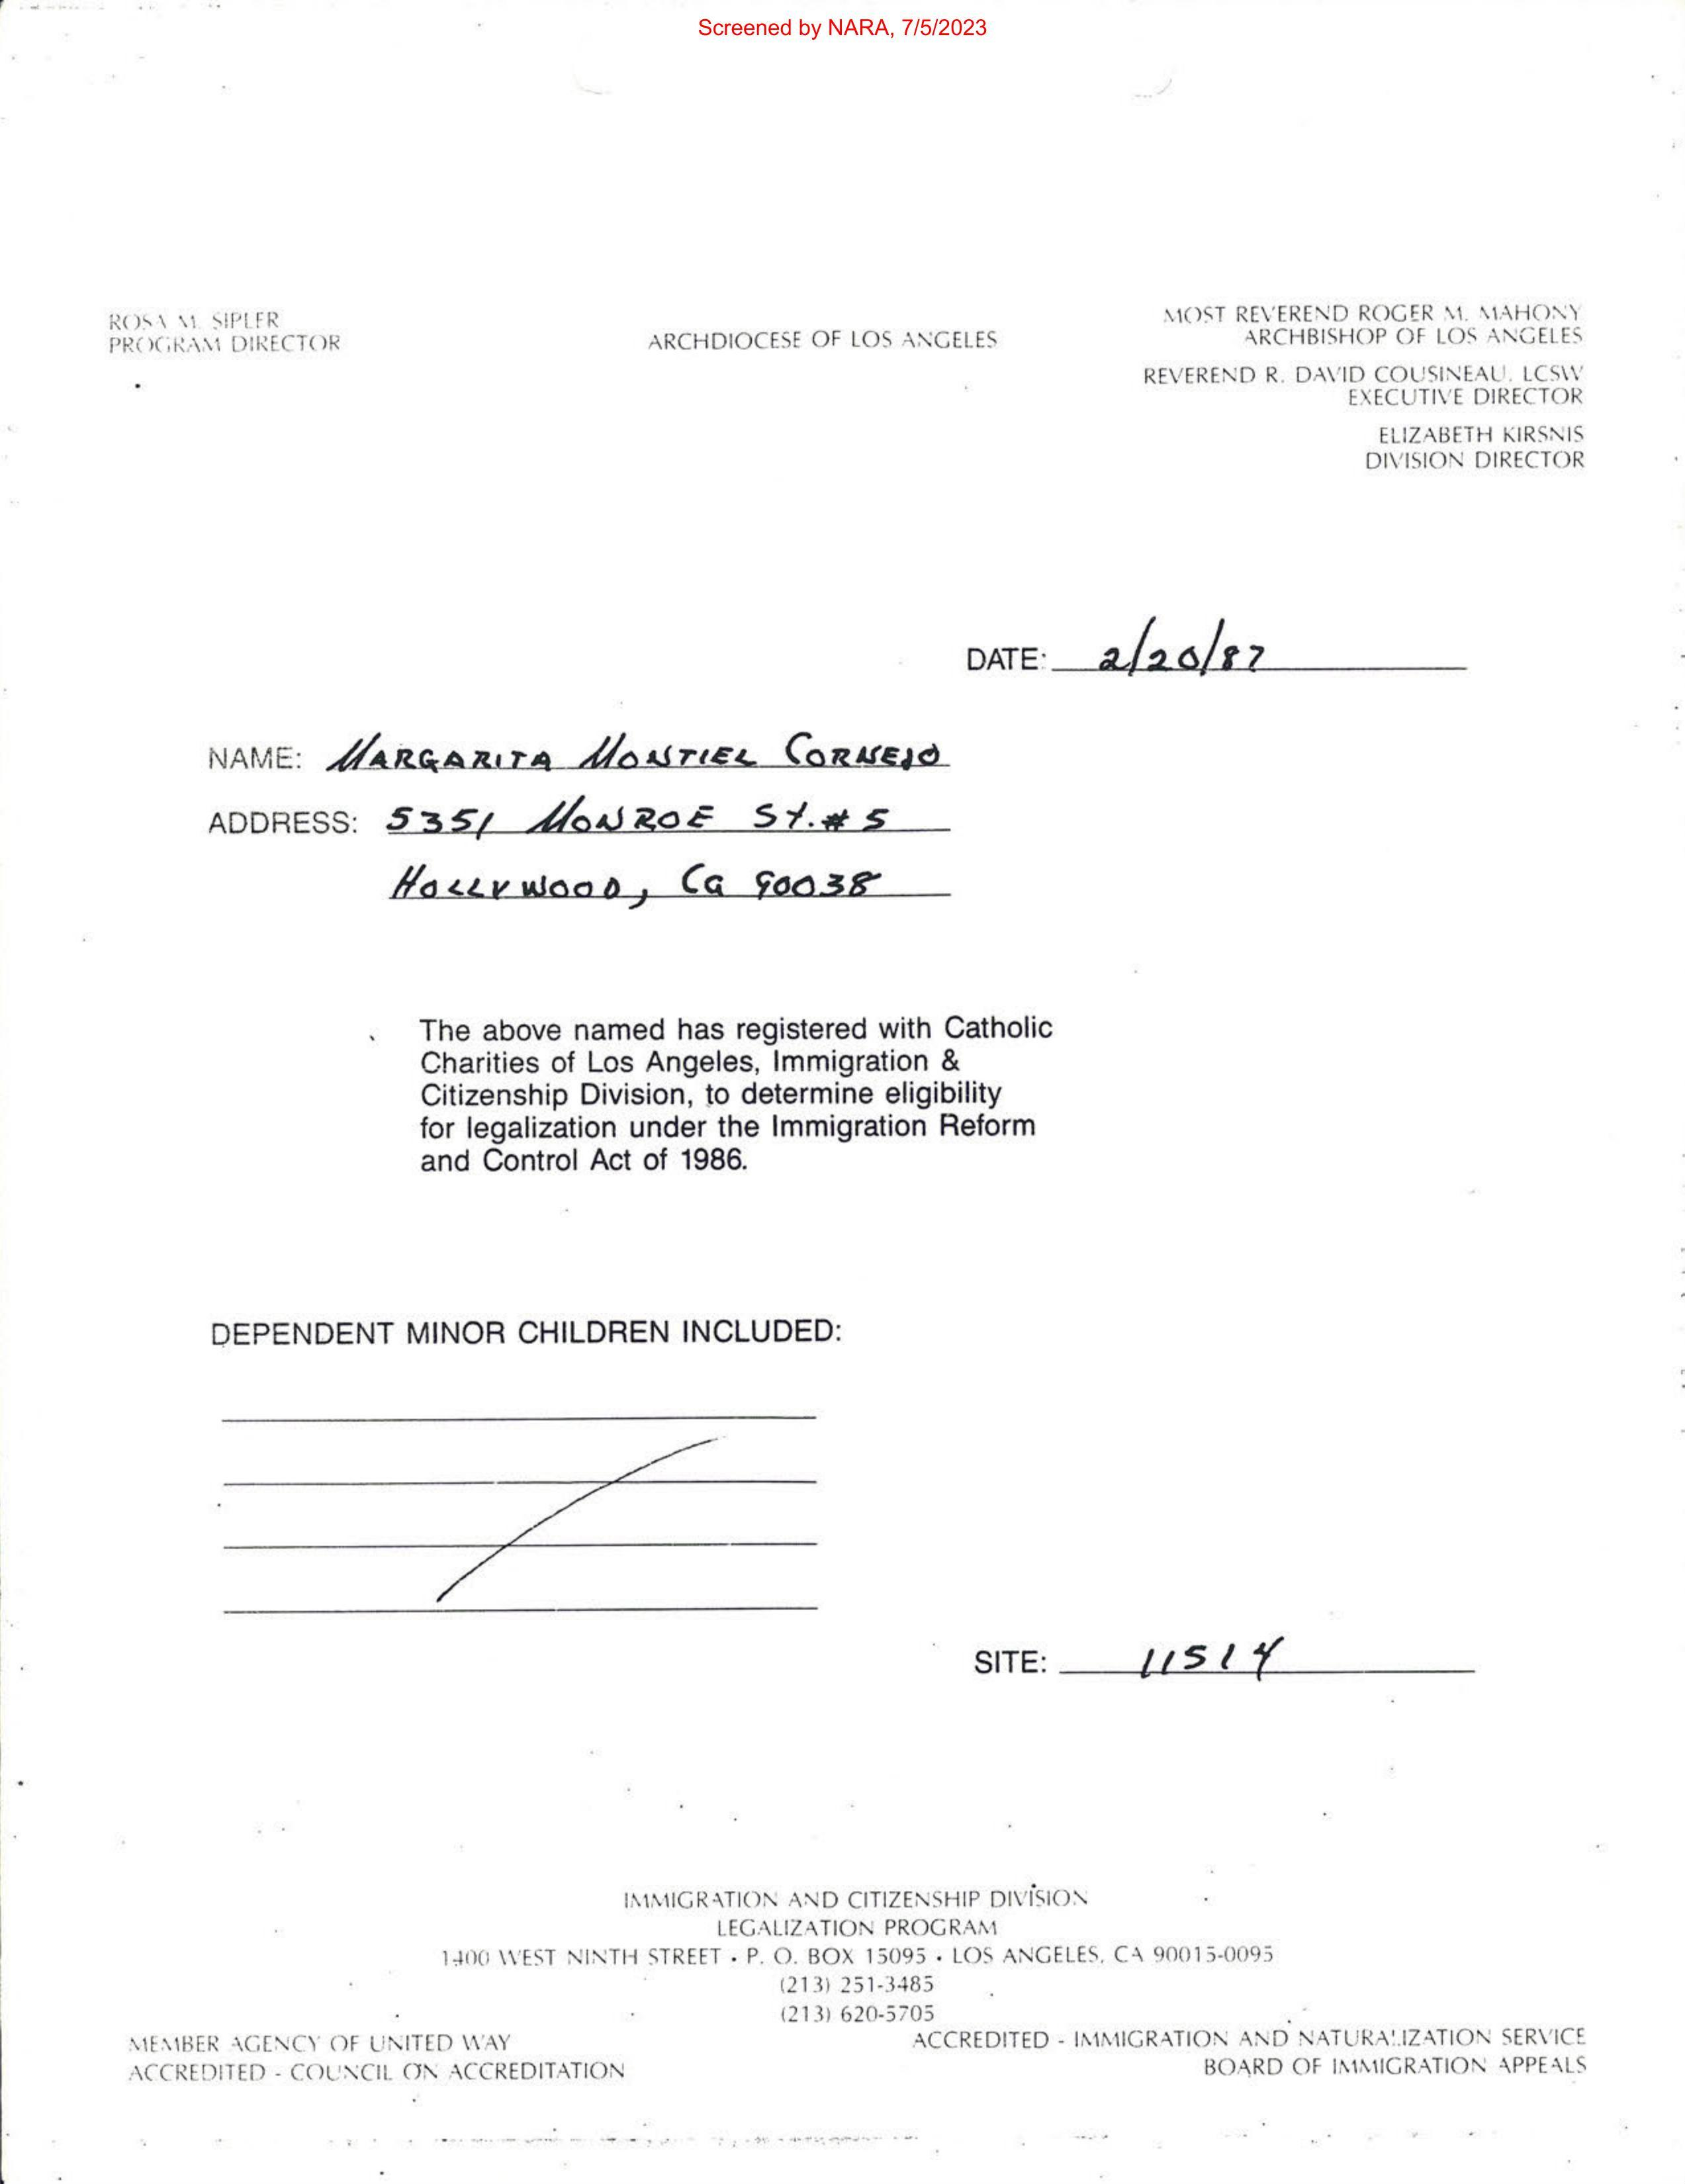 Screened by NARA, 7/5/2023
ROSA M. SIPLER
PROGRAM DIRECTOR
ARCHDIOCESE OF LOS ANGELES
MOST REVEREND ROGER M. MAHONY
ARCHBISHOP OF LOS ANGELES
REVEREND R. DAVID COUSINEAU, LCSW
EXECUTIVE DIRECTOR
ELIZABETH KIRSNIS
DIVISION DIRECTOR
DATE: 2/20/87
NAME: MARGARITA MONTIEL CORNEJO
ADDRESS: 5351 MONROE St. # 5
HOLLYWOOD, Ca 90038
The above named has registered with Catholic
Charities of Los Angeles, Immigration &
Citizenship Division, to determine eligibility
for legalization under the Immigration Reform
and Control Act of 1986.
DEPENDENT MINOR CHILDREN INCLUDED:
SITE: 11514
IMMIGRATION AND CITIZENSHIP DIVISION
LEGALIZATION PROGRAM
1400 WEST NINTH STREET • P. O. BOX 15095 • LOS ANGELES, CA 90015-0095
(213) 251-3485
(213) 620-5705
MEMBER AGENCY OF UNITED WAY
ACCREDITED - COUNCIL ON ACCREDITATION
ACCREDITED - IMMIGRATION AND NATURALIZATION SERVICE
BOARD OF IMMIGRATION APPEALS